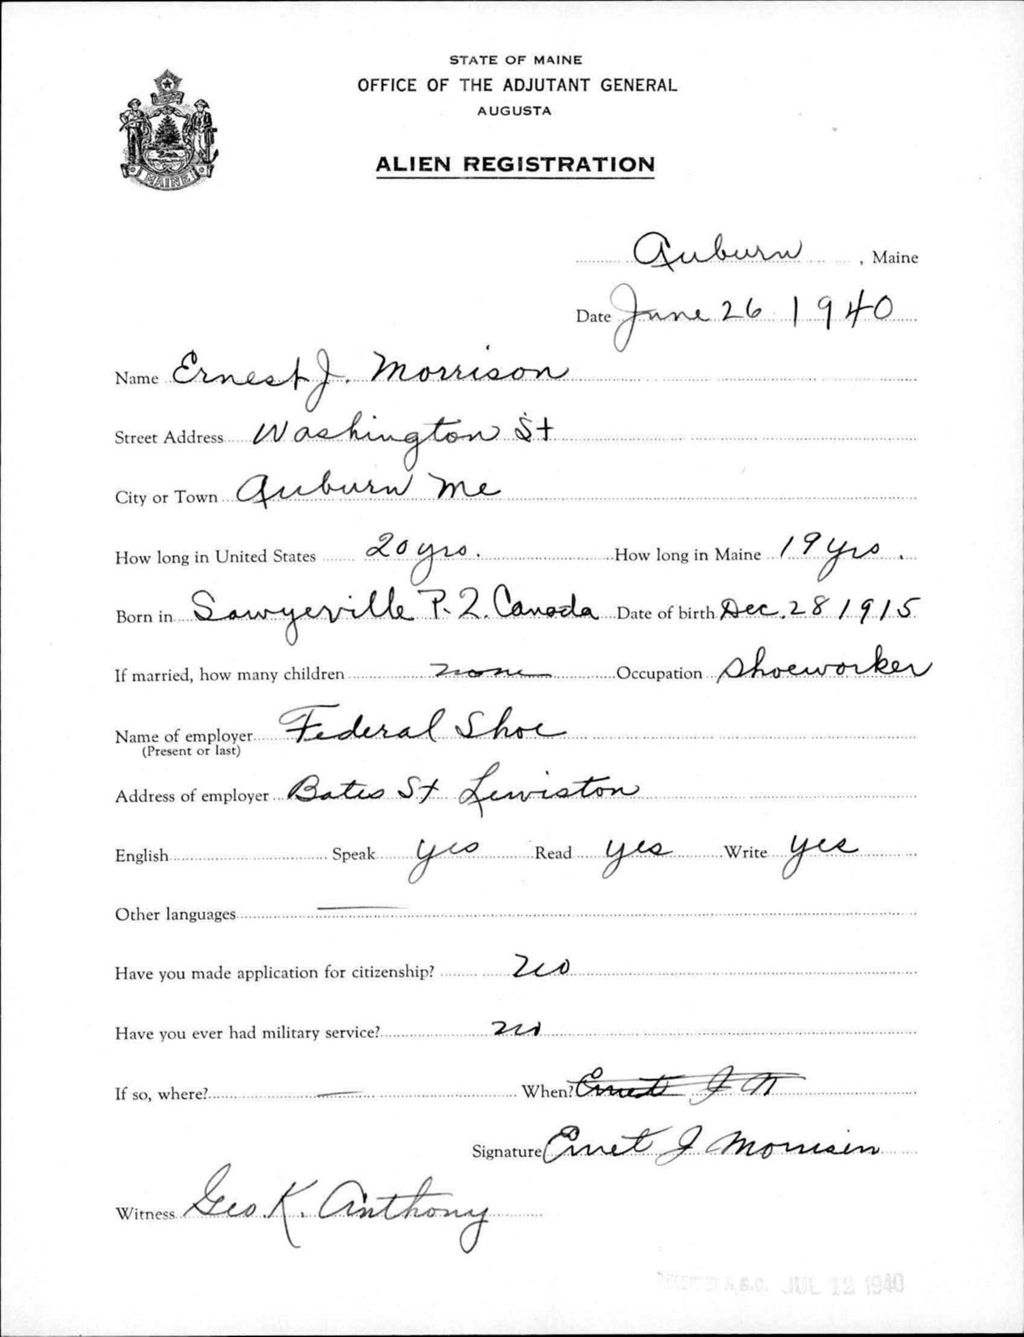 STATE OF MAINE
OFFICE OF THE ADJUTANT GENERAL
AUGUSTA
ALIEN REGISTRATION
MAINE
Auburn, Maine
Date June 26 1940
Name Ernest J. Morrison
Street Address Washington St
City or Town Auburn Me
How long in United States 20 yrs. How long in Maine 19 yrs.
Born in Sawyerville P.Q. Canada Date of birth Dec. 28 1915
If married, how many children none Occupation Shoeworker
Name of employer Federal Shoe
(Present or last)
Address of employer Bates St Lewiston
English Speak yes Read yes Write yes
Other languages —
Have you made application for citizenship? No
Have you ever had military service? no
If so, where? — When? Ernest J M
Signature Ernest J Morrison
Witness Geo. K. Anthony
RECEIVED A.G.O. JUL 12 1940